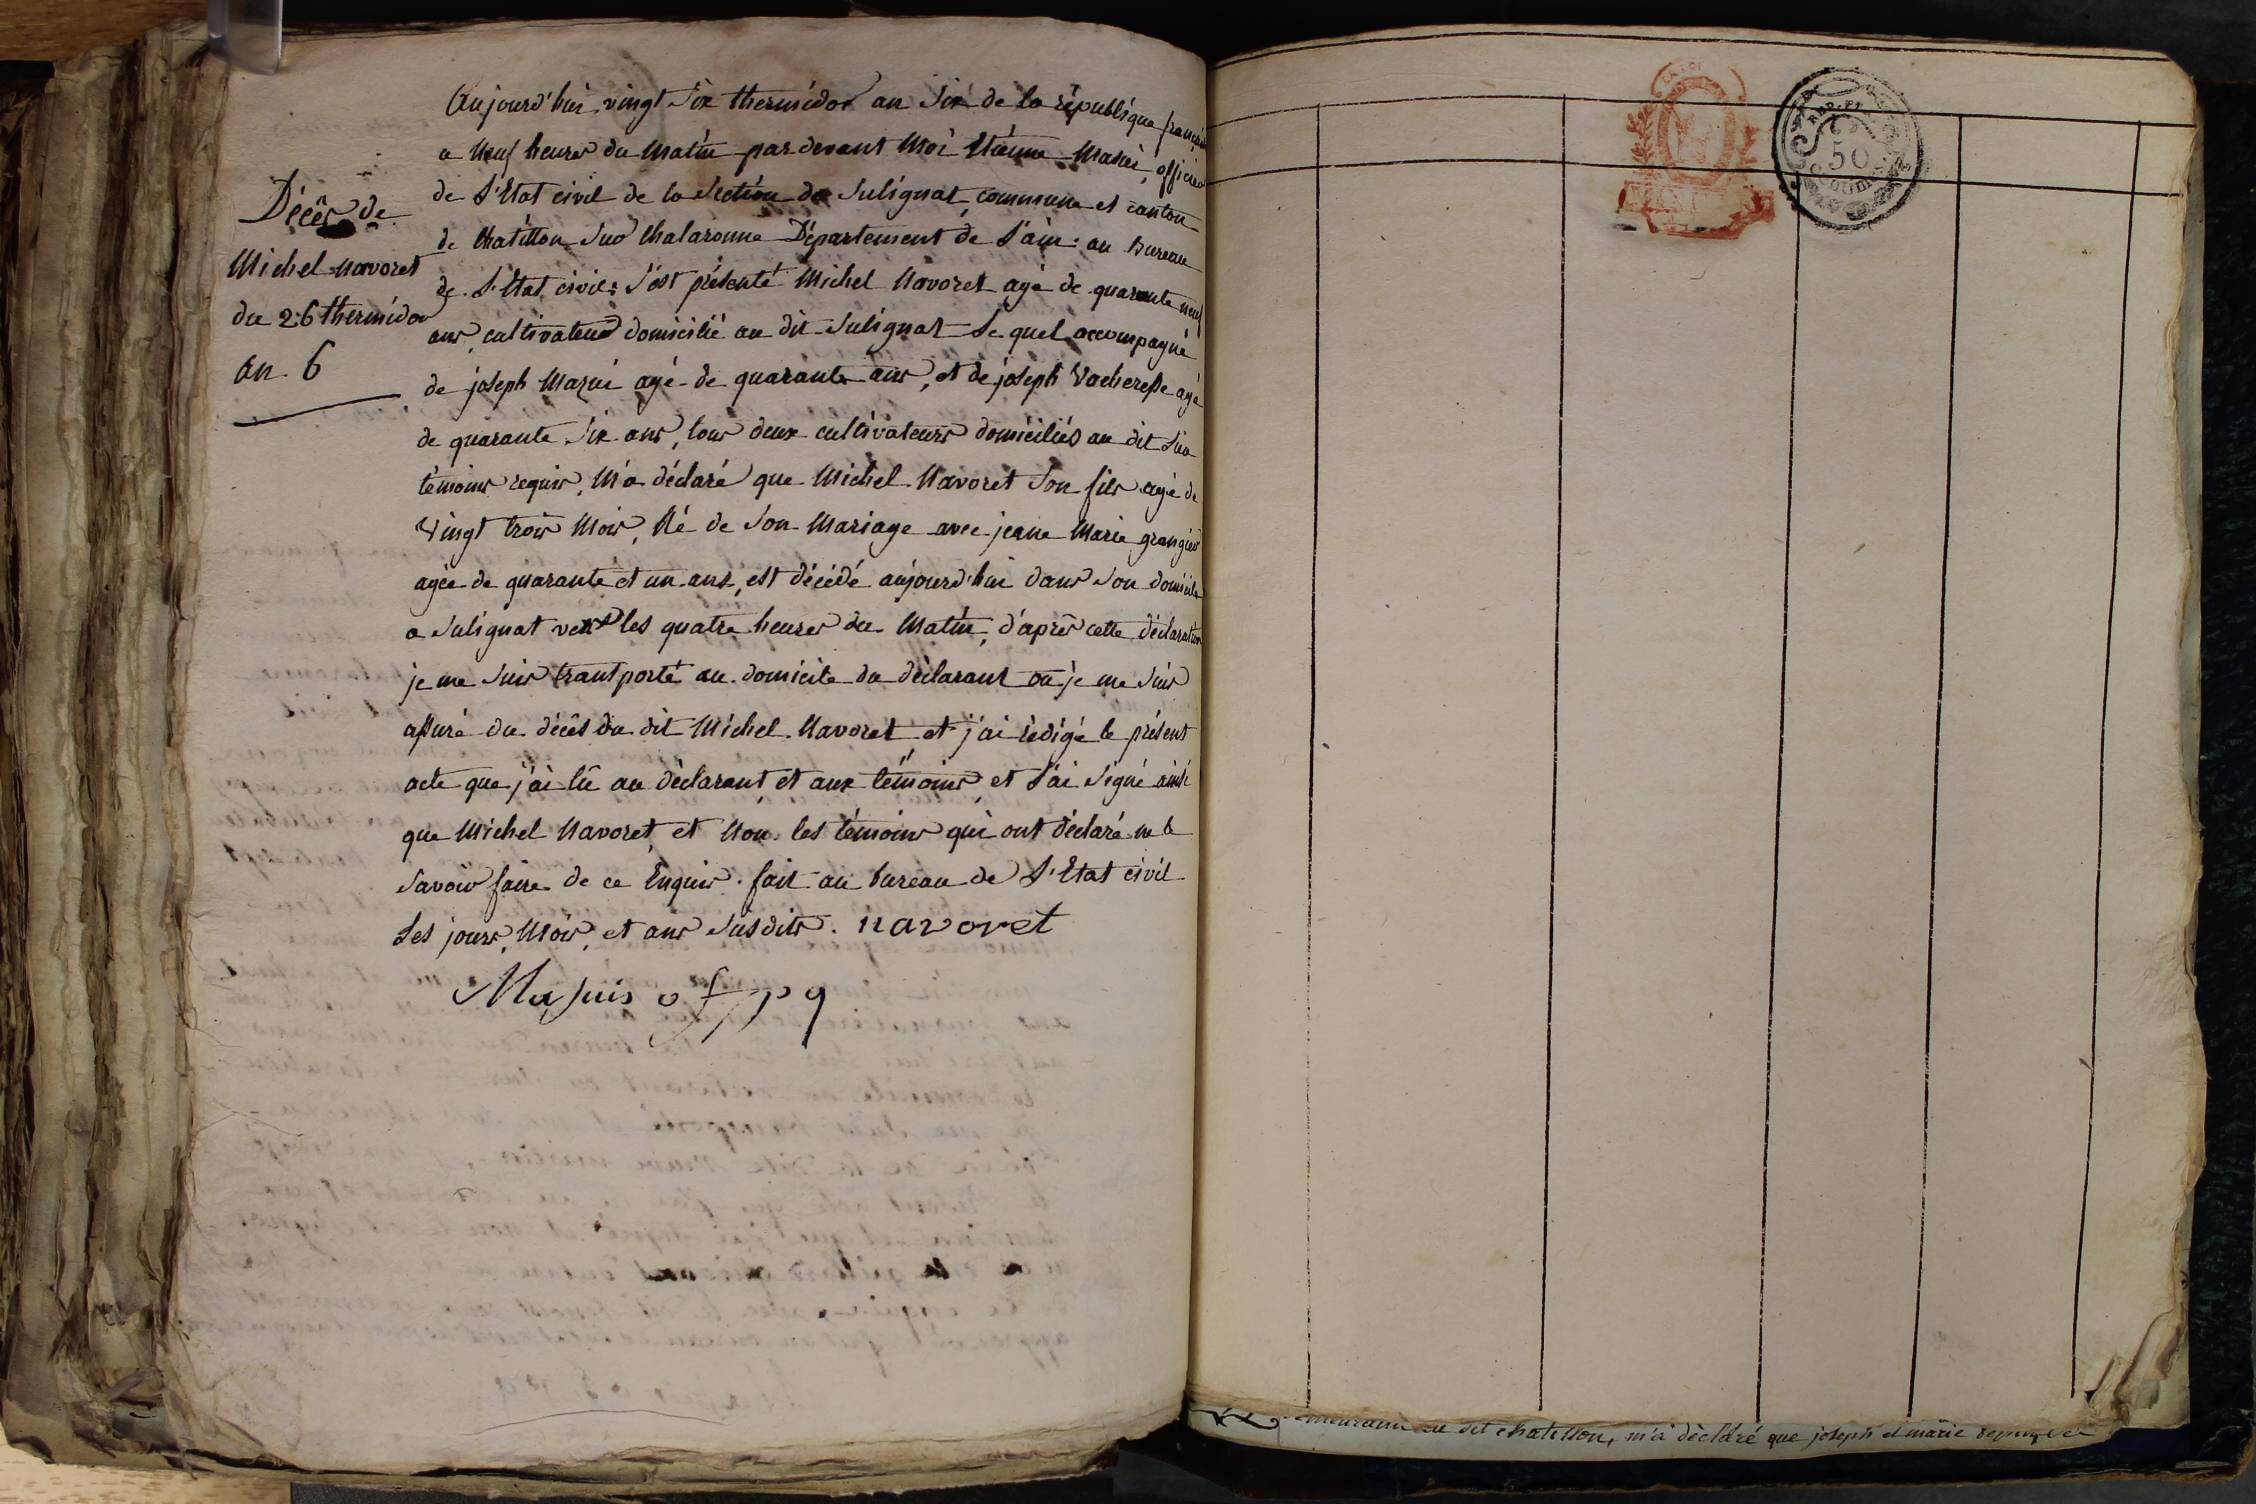 Décès de
Michel Navoret
du 26 thermidor
an 6
Aujourd'hui vingt six thermidor an six de la république française
a neuf heures du matin par devant moi Etienne officier
de l'Etat civil de la section de Sulignat, commune et canton
de Chatillon sur Chalaronne Département de l'ain: au Bureau
de l'Etat civil: s'est présenté Michel Navoret agé de quarante neuf
ans, cultivateur domicilié au dit Sulignat Le quel accompagné
de joseph Mazui agé de quarante ans, et de joseph Vacheresse agé
de quarante six ans, tous deux cultivateurs domiciliés au dit lieu
témoins requis, m'a déclaré que Michel Navoret son fils agé de
vingt trois mois, Né de son Mariage avec jeane Marie grangier
agée de quarante et un ans, est décédé aujourd'hui dans son domicile
a Sulignat vers les quatre heures du Matin, d'après cette déclaration
je me suis transporté au domicile du déclarant où je me suis
assuré du décès du dit Michel Navoret et j'ai rédigé le présent
acte que j'ai lû au déclarant et aux témoins, et l'ai signé ainsi
que Michel Navoret, et non les témoins qui ont déclaré ne le
savoir faire de ce Enquis. fait au bureau de l'Etat civil
Les jours, Mois, et ans susdits. navoret
REP. FRA
50
centimes
au dit chatillon, m'a déclaré que joseph et marie